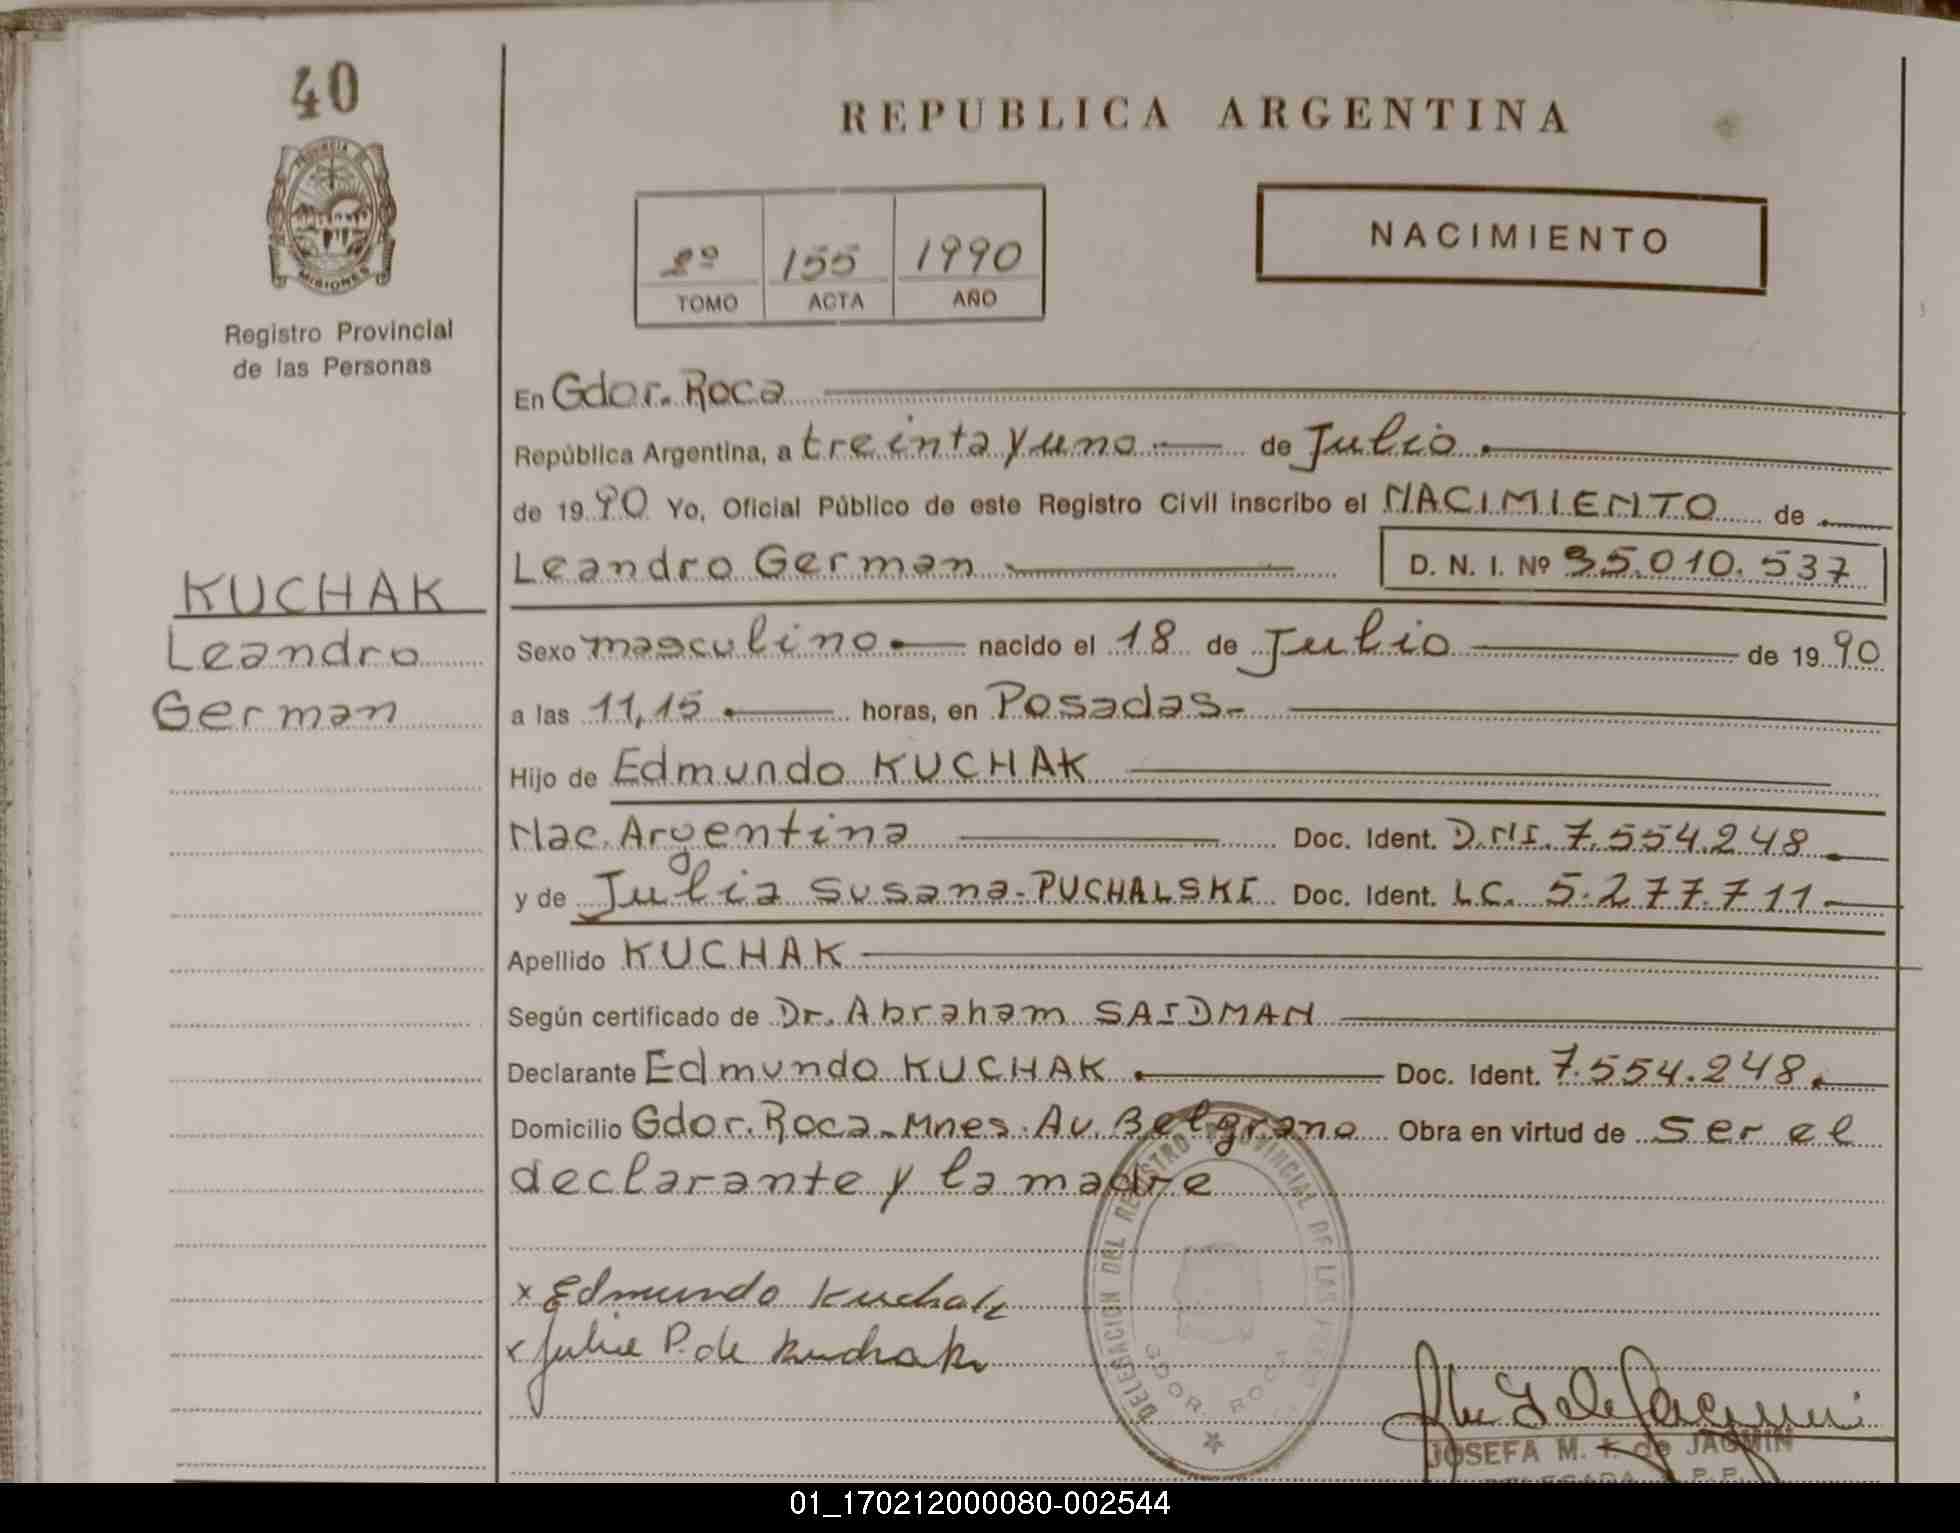 40
REPUBLICA ARGENTINA
PROVINCIA DE
MISIONES
Registro Provincial
de las Personas
2º 155 1990
TOMO ACTA AÑO
NACIMIENTO
En Gdor. Roca
República Argentina, a treinta y uno de Julio
de 1990 Yo, Oficial Público de este Registro Civil inscribo el NACIMIENTO de
Leandro German D. N. I. Nº 35.010.537
KUCHAK
Leandro
German
Sexo masculino nacido el 18 de Julio de 1990
a las 11,15 horas, en Posadas-
Hijo de Edmundo KUCHAK
Nac. Argentina Doc. Ident. D.N.I. 7.554.248
y de Julia Susana-PUCHALSKI Doc. Ident. L.C. 5.277.711
Apellido KUCHAK
Según certificado de Dr. Abraham SAIDMAN
Declarante Edmundo KUCHAK Doc. Ident. 7.554.248
Domicilio Gdor. Roca-Mnes. Av. Belgrano Obra en virtud de ser el
declarante y la madre
DELEGACION DEL REGISTRO PROVINCIAL DE LAS
GDOR. ROCA
x Edmundo Kuchak
x Julia P. de Kuchak
JOSEFA M. I. de JACMIN
DELEGADA R.P.P.
01_170212000080-002544